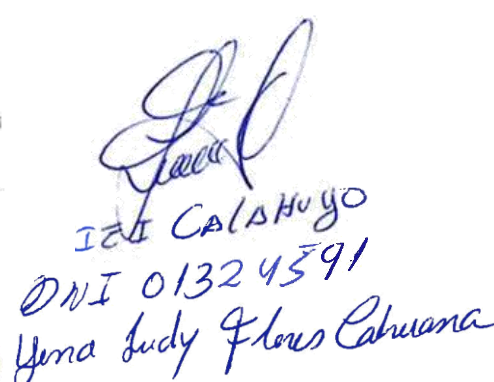 IEI CALAHUYO
DNI 01324591
Yena Judy Flores Cahuana